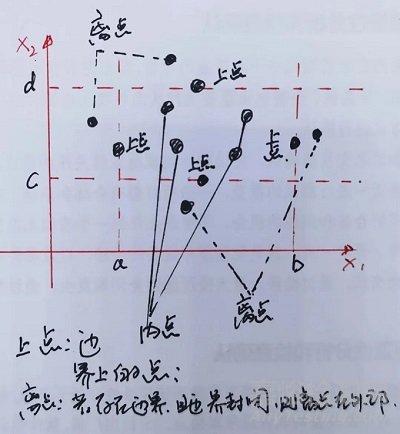 X₂
离点
d
上点
上点
上点
上点
c
a
b
X₁
内点
离点
上点：边
界上的点；
离点：若存在边界，且边界封闭，则离点在外部.